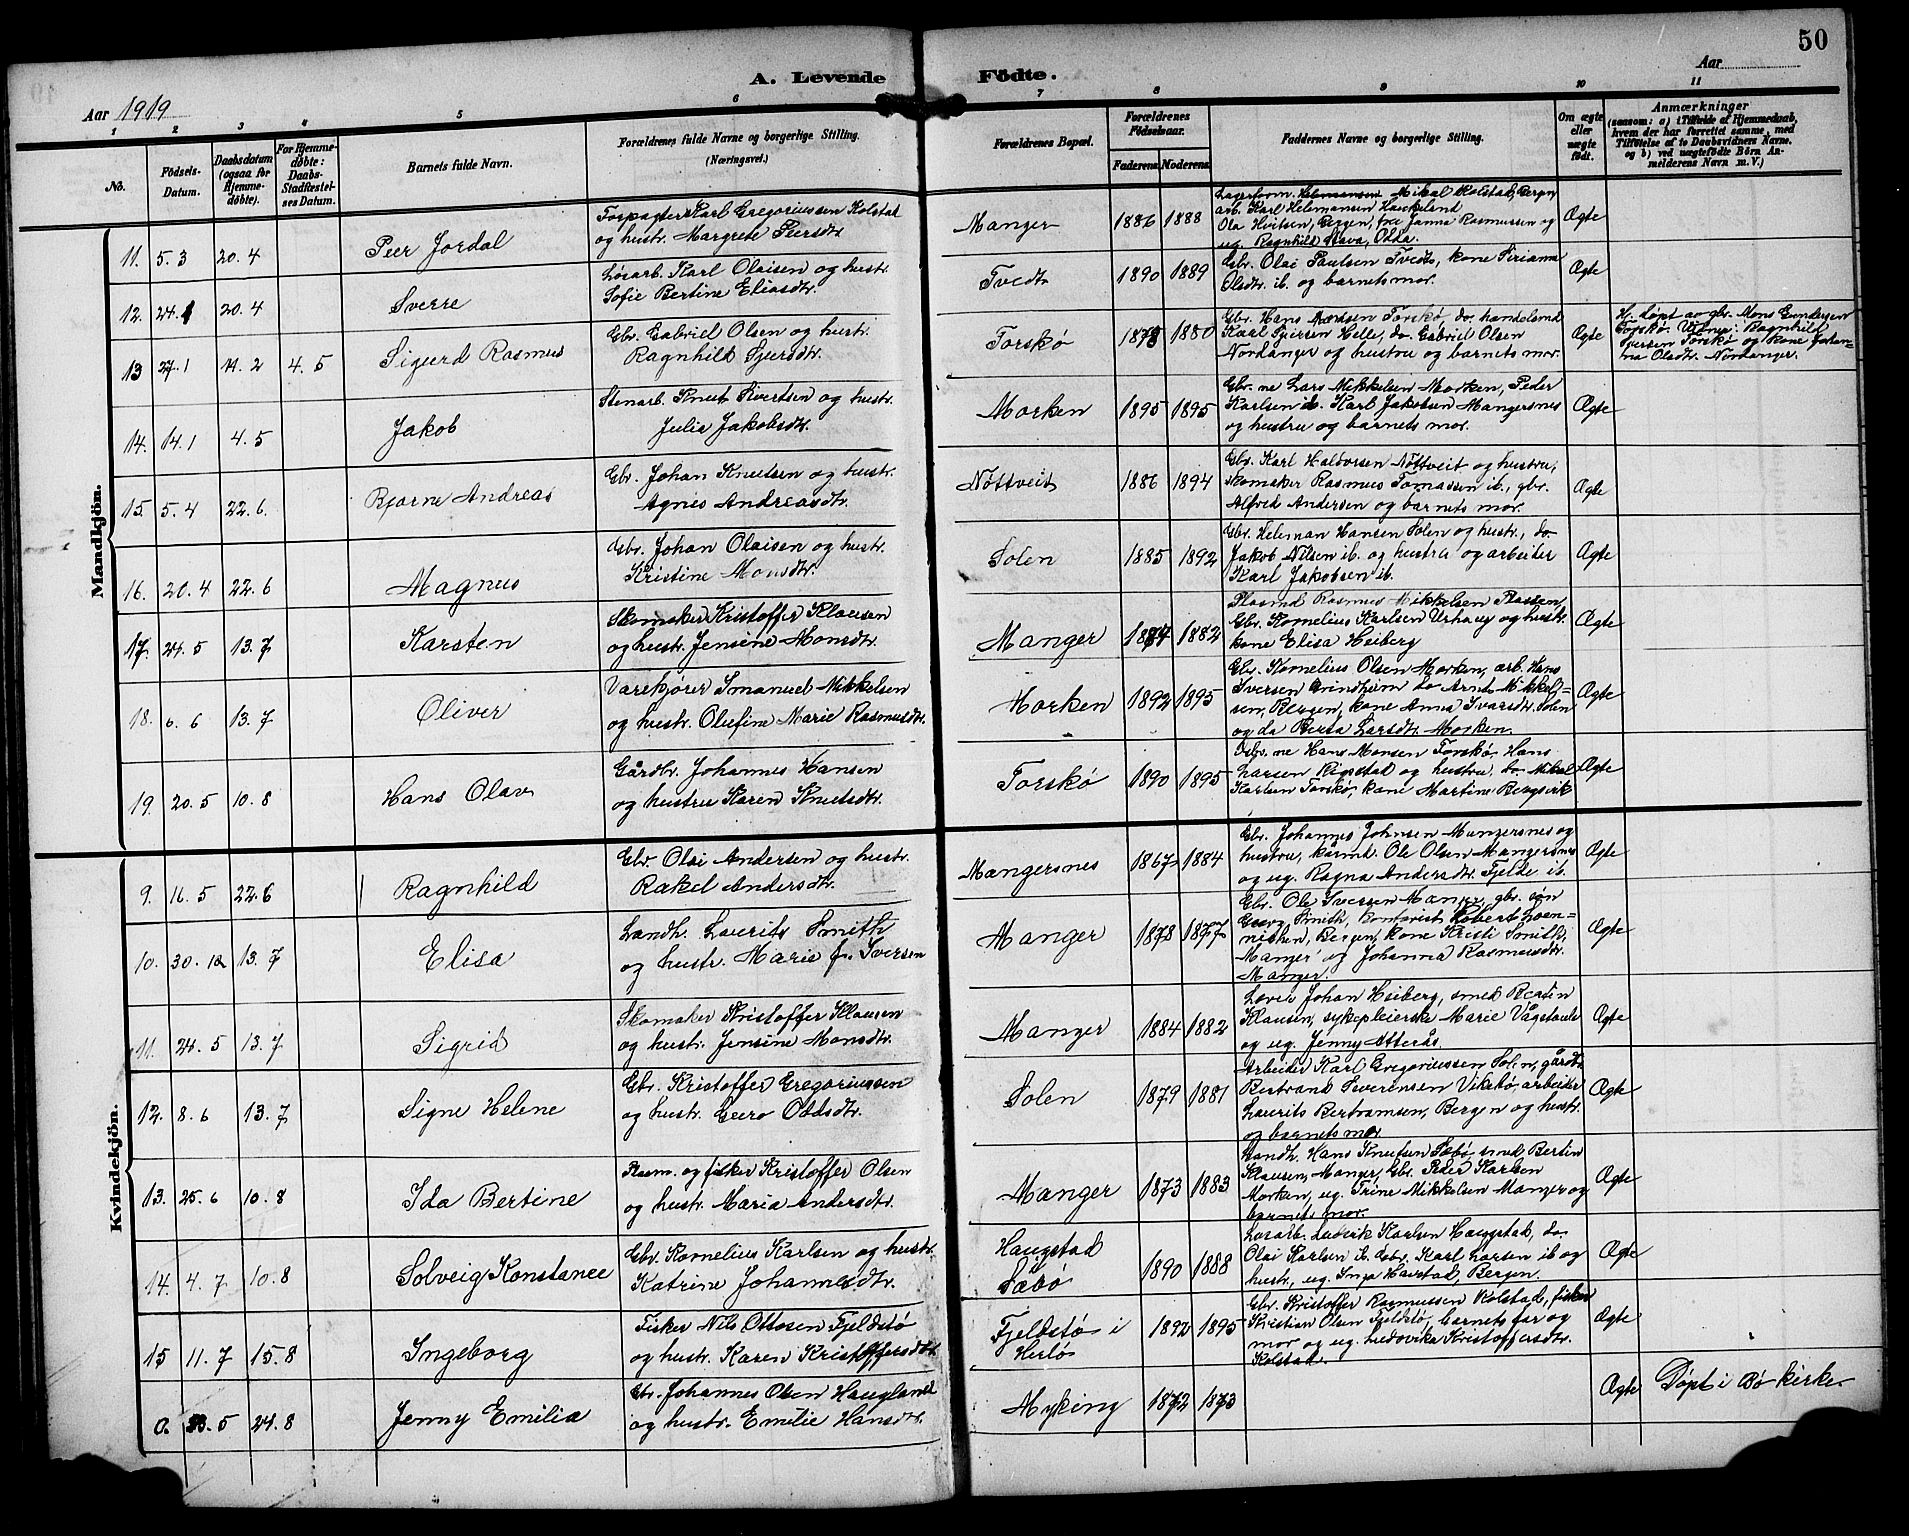 50
A. Levende Födte.
Aar 1919
Aar
1 2 3 4 5 6 7 8 9 10 11
No.
Födsels-Datum.
Daabsdatum (ogsaa for Hjemme-döbte).
For Hjemme-döbte: Daabs-Stadfæstel-ses Datum.
Barnets fulde Navn.
Forældrenes fulde Navne og borgerlige Stilling. (Næringsvei.)
Forældrenes Bopæl.
Forældrenes Födselsaar.
Faderens. Moderens.
Faddernes Navne og borgerlige Stilling.
Om ægte eller uægte födt.
Anmærkninger
(saasom: a) i Tilfælde af Hjemmedaab, hvem der har forrettet samme, med Tilföielse af to Daabsvidners Navne. og b) ved uægtefödte Börn An-melderens Navn m. V.)
Mandkjön.
11. 5.3 20.4 Peer Jordal
Forpagter Karl Gregoriussen Kolstad
og hustr. Margrete Peersdtr
Manger 1886 1888
Mikal Kolstad, Bergen
arb. Karl Helemansen Haukeland
Ragnhild Odda.
Ægte
12. 20.4 Sverre
Løsarb. Karl Olaisen og hustr.
Sofie Bertine Eliasdtr.
Tvedt 1890 1889
Gbr. Olai Paulsen Tvedt, kone Sirianna
Olsdtr. ib. og barnets mor.
Ægte
13 27.1 4.5 Sigurd Rasmus
Gbr. Gabriel Olsen og hustr.
Ragnhild Sjursdtr.
Torskø 1880
Gbr. Hans Monsen Torskø, do. handelsmd
Karl Hille, do. Gabriel Olsen
Nordanger og hustru og barnets mor.
Ægte
H. døpt av gbr. Mons Gundersen
Torskø. Vitner: Ragnhild
Iversen Torskø og kone Johan-
na Olsdtr. Nordanger.
14. 14.1 4.5 Jakob
Stenarb. Knut Sivertsen og hustr.
Julie Jakobsdtr.
Morken 1895 1895
Gbr. ne Lars Mikkelsen Morken, Peder
Karlsen ib. Karl Jakobsen Mangersnes
og hustru og barnets mor.
Ægte
15. 5.4 22.6. Bjarne Andreas
Gbr. Johan Knutsen og hustr.
Agnes Andreasdtr.
Nöttveit 1886 1894
Gbr. Karl Halvorsen Nöttveit og hustru,
skomaker Rasmus Tomassen ib., gbr.
Alfred Andersen og barnets mor.
Ægte
16. 20.4 22.6 Magnus
Gbr. Johan Olaisen og hustr.
Kristine Monsdtr.
Solen 1885 1892
Gbr. Heleman Hansen Solen og hustr., do
Jakob Nilsen ib. og hustru og arbeider
Karl Jakobsen ib.
Ægte
17. 24.5 13.7 Karsten
Skomaker Kristoffer Klausen
og hustr. Jensine Monsdtr.
Manger 1884 1882
Plasmd Rasmus Mikkelsen
Gbr. Kornelius Karlsen Urhaug og hustr.
kone Elisa Heiberg
Ægte
18. 6.6 13.7 Oliver
Varekjører Imanuel Mikkelsen
og hustr. Olufine Marie Rasmusdtr.
Morken 1892 1895
Gbr. Kornelius Olsen Morken, arb. Hans
Iversen Grindheim do Arnt Mikkel-
sen, Bergen, kone Anna Ivarsdtr. Solen
og do Berta Larsdtr. Morken.
Ægte
19. 20.5 10.8 Hans Olav
Gårdbr. Johannes Hansen
og hustru Karen Knutsdtr.
Torskø 1890 1895
Gbr. ne Hans Monsen Torskø, Hans
Larsen og hustru, do Mikal
Karlsen Torskø, kone Martine Bergsvik
Ægte
Kvindekjön.
9. 16.5 22.6 Ragnhild
Gbr. Olai Andersen og hustr.
Rakel Andersdtr.
Mangersnes 1867 1884
Gbr. Johannes Johnsen Mangersnes og
hustru, kårmd. Ole Olsen Mangersnes
og ug. Ragna Andersdtr. Fjelde ib.
Ægte
10. 30.12 13.7 Elisa
Landh. Lauritz Smith
og hustr. Marie f. Iversen
Manger 1878 1877
Gbr. Ole Iversen Manger, gbr. søn
Georg Smith, kontorist Robert Loen-
nichen, Bergen, kone Kristi Smith,
Manger og Johanna Rasmusdtr.
Manger.
Ægte
11. 24.5 13.7 Sigrid
Skomaker Kristoffer Klausen
og hustr. Jensine Monsdtr.
Manger 1884 1882
Johan Heiberg, smed Bertin
Klausen, sykepleierske Marie Vågstad
og ug. Jenny Atterås
Ægte
12. 8.6 13.7 Signe Helene
Gbr. Kristoffer Gregoriussen
og hustr. Gero Oddsdtr.
Solen 1879 1881
Arbeider Karl Gregoriussen Solen, gårdb
Bertrand Severensen Vikebø, arbeider
Laurits Bertramsen, Bergen og hustr.
og barnets mor.
Ægte
13. 25.6 10.8 Ida Bertine
Plasm. og fisker Kristoffer Olsen
og hustr. Maria Andersdtr.
Manger 1873 1883
Landh. Hans Knutsen Sæbø, smed Bertin
Klausen, Manger, Gbr. Peder Karlsen
Morken, ug. Trine Mikkelsen Manger og
barnets mor.
Ægte
14. 4.7 10.8 Solveig Konstance
Gbr. Kornelius Karlsen og hustr.
Katrine Johannesdtr.
Haugstad
Sæbø 1890 1888
Løsarb. Ludvik Karlsen Haugstad, do.
Olai Karlsen ib. Gbr. Karl Larsen ib og
hustr., ug. Inga Haugstad, Bergen.
Ægte
15 11.7 15.8 Ingeborg
Fisker Nils Ottosen Fjeldstø
og hustr. Karen Kristoffersdtr.
Fjeldstø i
Herlø 1892 1895
Gbr. Kristoffer Rasmussen Kolstad, fisker
Kristian Olsen Fjeldstø, barnets far og
mor og ug. Ludovika Kristoffersdtr.
Kolstad.
Ægte
0. 24.8 Jenny Emilia
Gbr. Johannes Olsen Haugland
og hustr. Emilie Hansdtr.
Myking 1872 1873
Ægte
Døpt i Bø kirke